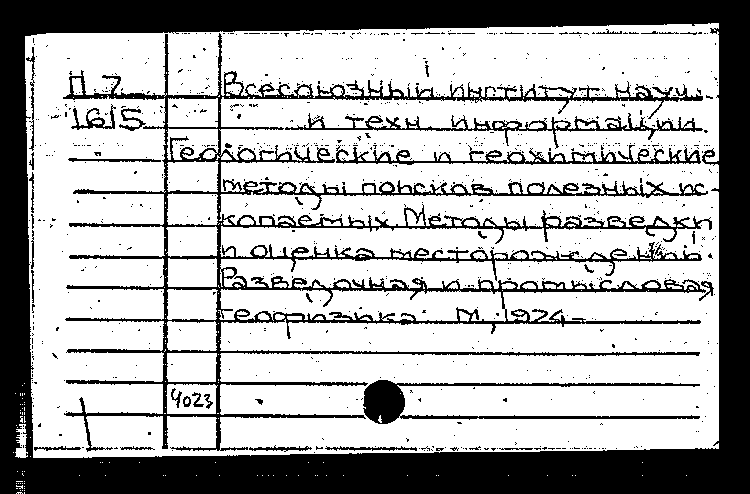 П 7 Всесоюзный институт науч.
1615 и техн. информации.
Геологические и геохимические
методы поисков полезных ис-
копаемых. Методы разведки
и оценка месторождений.
Разведочная и промысловая
геофизика. М., 1974-
4023